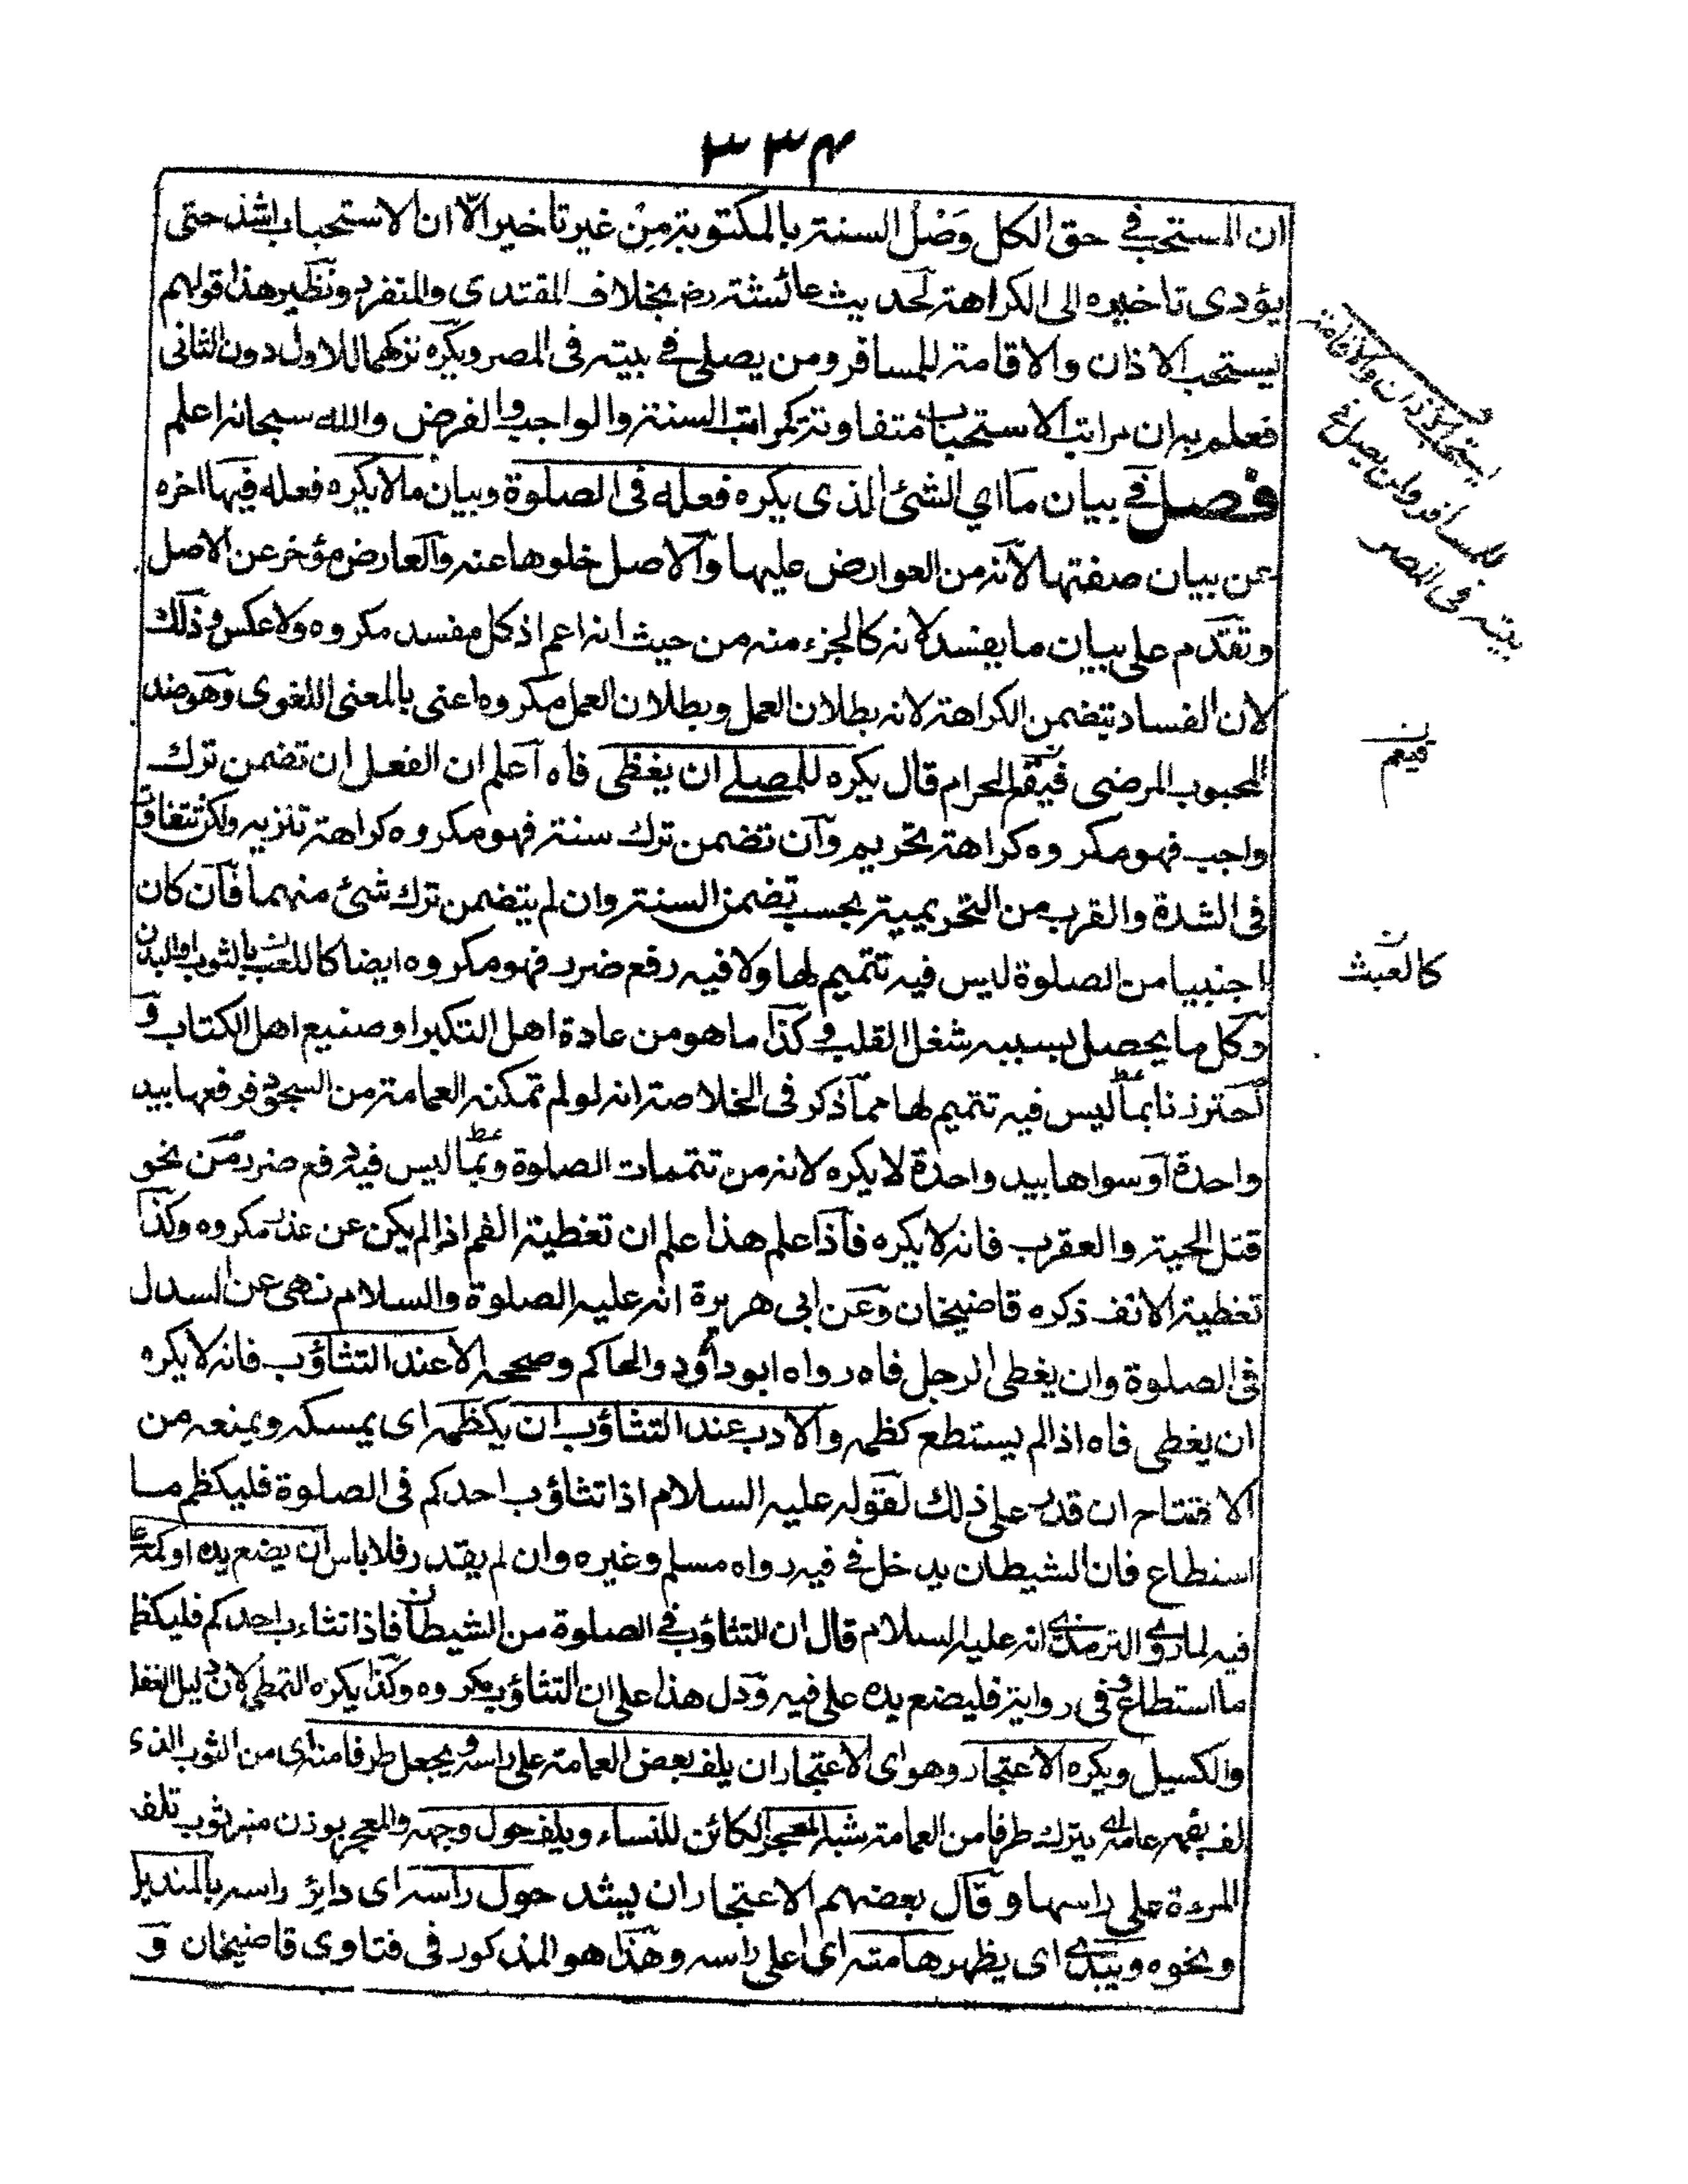 ٣٣٤
ان المستحب في حق الكل وَصْلُ السنة بالمكتوبة مِنْ غير تاخير الّا ان الاستحباب اشد حتى
يؤدى تاخيره الى الكراهة لحديث عائشة رض بخلاف المقتدى والمنفرد ونظير هذا قولهم
يستحب الاذان والاقامة للمسافر ومن يصلى في بيته فى المصر ويكره تركهما للاول دون الثانى
فعلم به ان مراتب الاستحباب متفاوتة كمراتب السنة والواجب والفرض والله سبحانه اعلم
فصل في بيان ما اي الشئ الذى يكره فعله فى الصلوة وبيان ما لا يكره فعله فيها اخره
عن بيان صفتها لانه من العوارض عليها والاصل خلوها عنه والعارض مؤخر عن الاصل
وتقدم على بيان ما يفسد لانه كالجزء منه من حيث انه اعم اذ كل مفسد مكروه ولا عكس وذلك
لان الفساد يتضمن الكراهة لانه بطلان العمل وبطلان العمل مكروه اعنى بالمعنى اللغوى وهو ضد
المحبوب المرضى فيعم الحرام قال يكره للمصلے ان يغطى فاه اعلم ان الفعل ان تضمن ترك
واجب فهو مكروه كراهة تحريم وان تضمن ترك سنة فهو مكروه كراهة تنزيه ولكن تتفاوت
فى الشدة والقرب من التحريمية بحسب تضمن السنة وان لم يتضمن ترك شئ منهما فان كان
اجنبيا من الصلوة ليس فيه تتميم لها ولا فيه دفع ضرر فهو مكروه ايضا كاللعب بالثوب او البدن
وكل ما يحصل بسببه شغل القلب وكذا ما هو من عادة اهل التكبر او صنيع اهل الكتاب و
احترزنا بما ليس فيه تتميم لها مما ذكر فى الخلاصة انه لو لم تمكنه العمامة من السجود فرفعها بيد
واحدة او سواها بيد واحدة لا يكره لانه من تتممات الصلوة وبما ليس فيه دفع ضرر من نحو
قتل الحية والعقرب فانه لا يكره فاذا علم هذا علم ان تغطية الفم اذا لم يكن عن عذر مكروه وكذا
تغطية الانف ذكره قاضيخان وعن ابى هريرة انه عليه الصلوة والسلام نهى عن السدل
فى الصلوة وان يغطى الرجل فاه رواه ابو داؤد والحاكم وصححه الا عند التثاؤب فانه لا يكره
ان يغطى فاه اذا لم يستطع كظمه والادب عند التثاؤب ان يكظمه اى يمسكه ويمنعه من
الافتتاح ان قدر على ذلك لقوله عليه السلام اذا تثاؤب احدكم فى الصلوة فليكظم ما
استطاع فان الشيطان يدخل في فيه رواه مسلم وغيره وان لم يقدر فلا باس ان يضع يده او كمه على
فيه لما روى الترمذى انه عليه السلام قال ان التثاؤب في الصلوة من الشيطان فاذا تثاءب احدكم فليكظم
ما استطاع و فى رواية فليضع يده على فيه ودل هذا على ان التثاؤب مكروه وكذا يكره التمطى لانه دليل الغفلة
والكسل ويكره الاعتجار وهو اى الاعتجار ان يلف بعض العمامة على راسه ويجعل طرفا منه اى من الثوب الذى
لف بعضه عامة اى يترك طرفا من العمامة شبه المعجر الكائن للنساء ويلف حول وجهه والمعجر بوزن منبر ثوب تلفه
المرءة على راسها وقال بعضهم الاعتجار ان يشد حول راسه اى دائر راسه بالمنديل
ونحوه ويبدى اى يظهر هامته اى اعلى راسه وهذا هو المذكور فى فتاوى قاضيخان و
يستحب الاذان والاقامة
للمسافر ولمن يصلى في
بيته فى المصر
فيعم
كالعبث